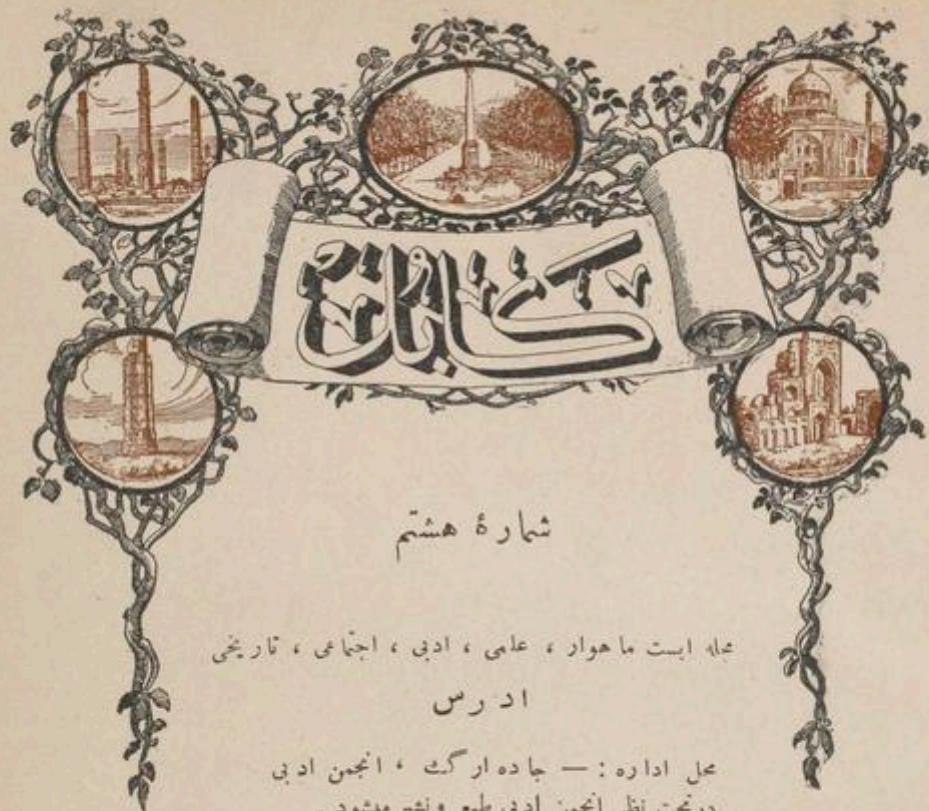 کابل
شمارهٔ هشتم
مجله ایست ماهوار ، علمی ، ادبی ، اجتماعی ، تاریخی
ادرس
محل اداره : — جاده ارگ ، انجمن ادبی
در تحت نظر انجمن ادبی طبع و نشر میشود